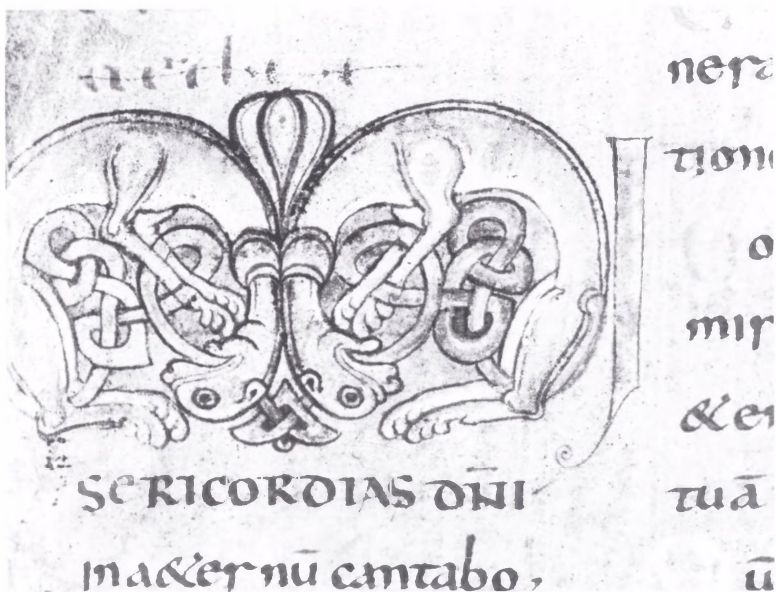 MI
SERICORDIAS DN̄I
In a&ernū cantabo,
nera
tion
o
mir
&er
tuā
ū